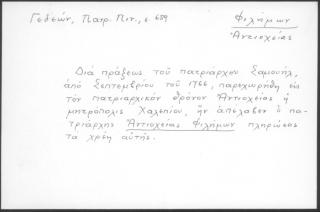 Γεδεών, Πατρ. Πιν., σ. 659
Φιλήμων
Ἀντιοχείας
Διά πράξεως τοῦ πατριάρχου Σαμουήλ,
ἀπό Σεπτεμβρίου τοῦ 1766, παρεχωρήθη εἰς
τόν πατριαρχικόν θρόνον Ἀντιοχείας ἡ
μητρόπολις Χαλεπίου, ἥν ἀπέλαβεν ὁ πα-
τριάρχης Ἀντιοχείας Φιλήμων πληρώσας
τά χρέη αὐτῆς.